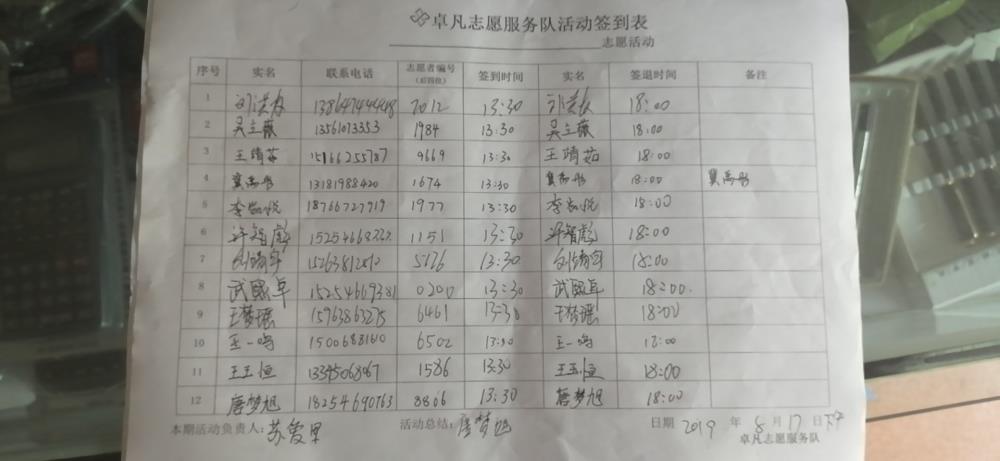 卓凡志愿服务队活动签到表
志愿活动
序号 实名 联系电话 志愿者编号(后四位) 签到时间 实名 签退时间 备注
1 7012 13:30 18:00
2 吴立薇 13561073353 1984 13:30 吴立薇 18:00
3 王靖茹 15166255787 9669 13:30 王靖茹 18:00
4 冀禹彤 13181988420 1674 13:30 冀禹彤 18:00 冀禹彤
5 李凯悦 18766727919 1977 13:30 李凯悦 18:00
6 许智彪 1151 13:30 许智彪 18:00
7 13:30 18:00
8 15254669381 0200 13:30 18:00.
9 王梦瑶 15963863275 6461 13:30 王梦瑶 18:00
10 王一鸣 6502 13:30 王一鸣 18:00
11 王玉恒 1586 13:30 王玉恒 18:00
12 唐梦旭 18254690763 8866 13:30 唐梦旭 18:00
本期活动负责人: 活动总结: 唐梦旭 日期 2019 年 8 月 17 日 下午
卓凡志愿服务队